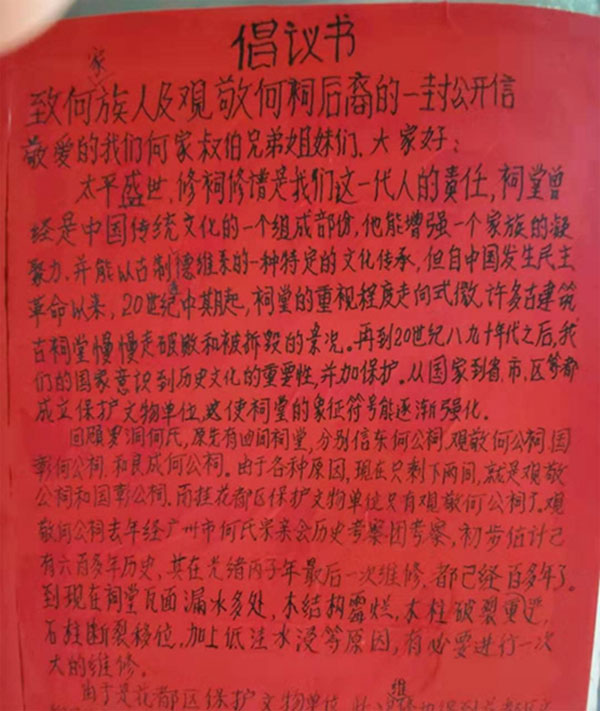 倡议书
家
致何族人及观敬何祠后裔的一封公开信
敬爱的我们何家叔伯兄弟姐妹们、大家好:
太平盛世,修祠修谱是我们这一代人的责任,祠堂曾
经是中国传统文化的一个组成部份,他能增强一个家族的凝
聚力、并能从古制德维系的一种特定的文化传承,但自中国发生民主
革命以来,20世纪中期起,祠堂的重视程度走向式微、许多古建筑
古祠堂慢慢走破败和被拆毁的景况。再到20世纪八九十年代之后,我
们的国家意识到历史文化的重要性,并加保护。从国家到省、市、区等都
成立保护文物单位,这使祠堂的象征符号能逐渐强化。
回顾罗洞何氏,原先有四间祠堂,分别信东何公祠、观敬何公祠、国
彰何公祠、和良成何公祠。由于各种原因,现在只剩下两间,就是观敬
公祠和国彰公祠、而挂花都区保护文物单位只有观敬何公祠了。观
敬何公祠去年经广州市何氏宗亲会历史考察团考察,初步估计已
有六百多年历史,其在光绪丙子年最后一次维修、都已经百多年了。
到现在祠堂瓦面漏水多处,木结构霉烂、木柱破裂
石柱断裂移位,加上低洼水浸等原因,有必要进行一次
大的维修。
由于是花都区保护文物单位